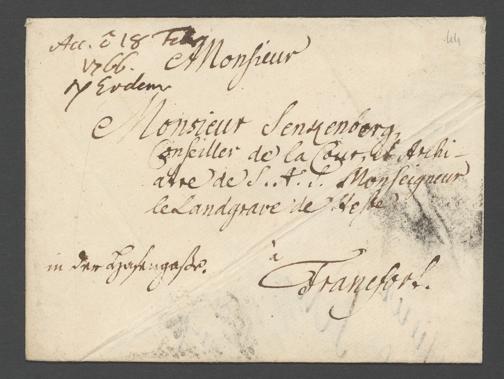 44
Acc. d 18 Febr
1766.
Monsieur
Monsieur Senkenberg,
Conseiller de la Cour, et Archi-
atre de S. A. S. Monseigneur
le Landgrave de Hesse
in der Hasengasse.
à
Francfort.